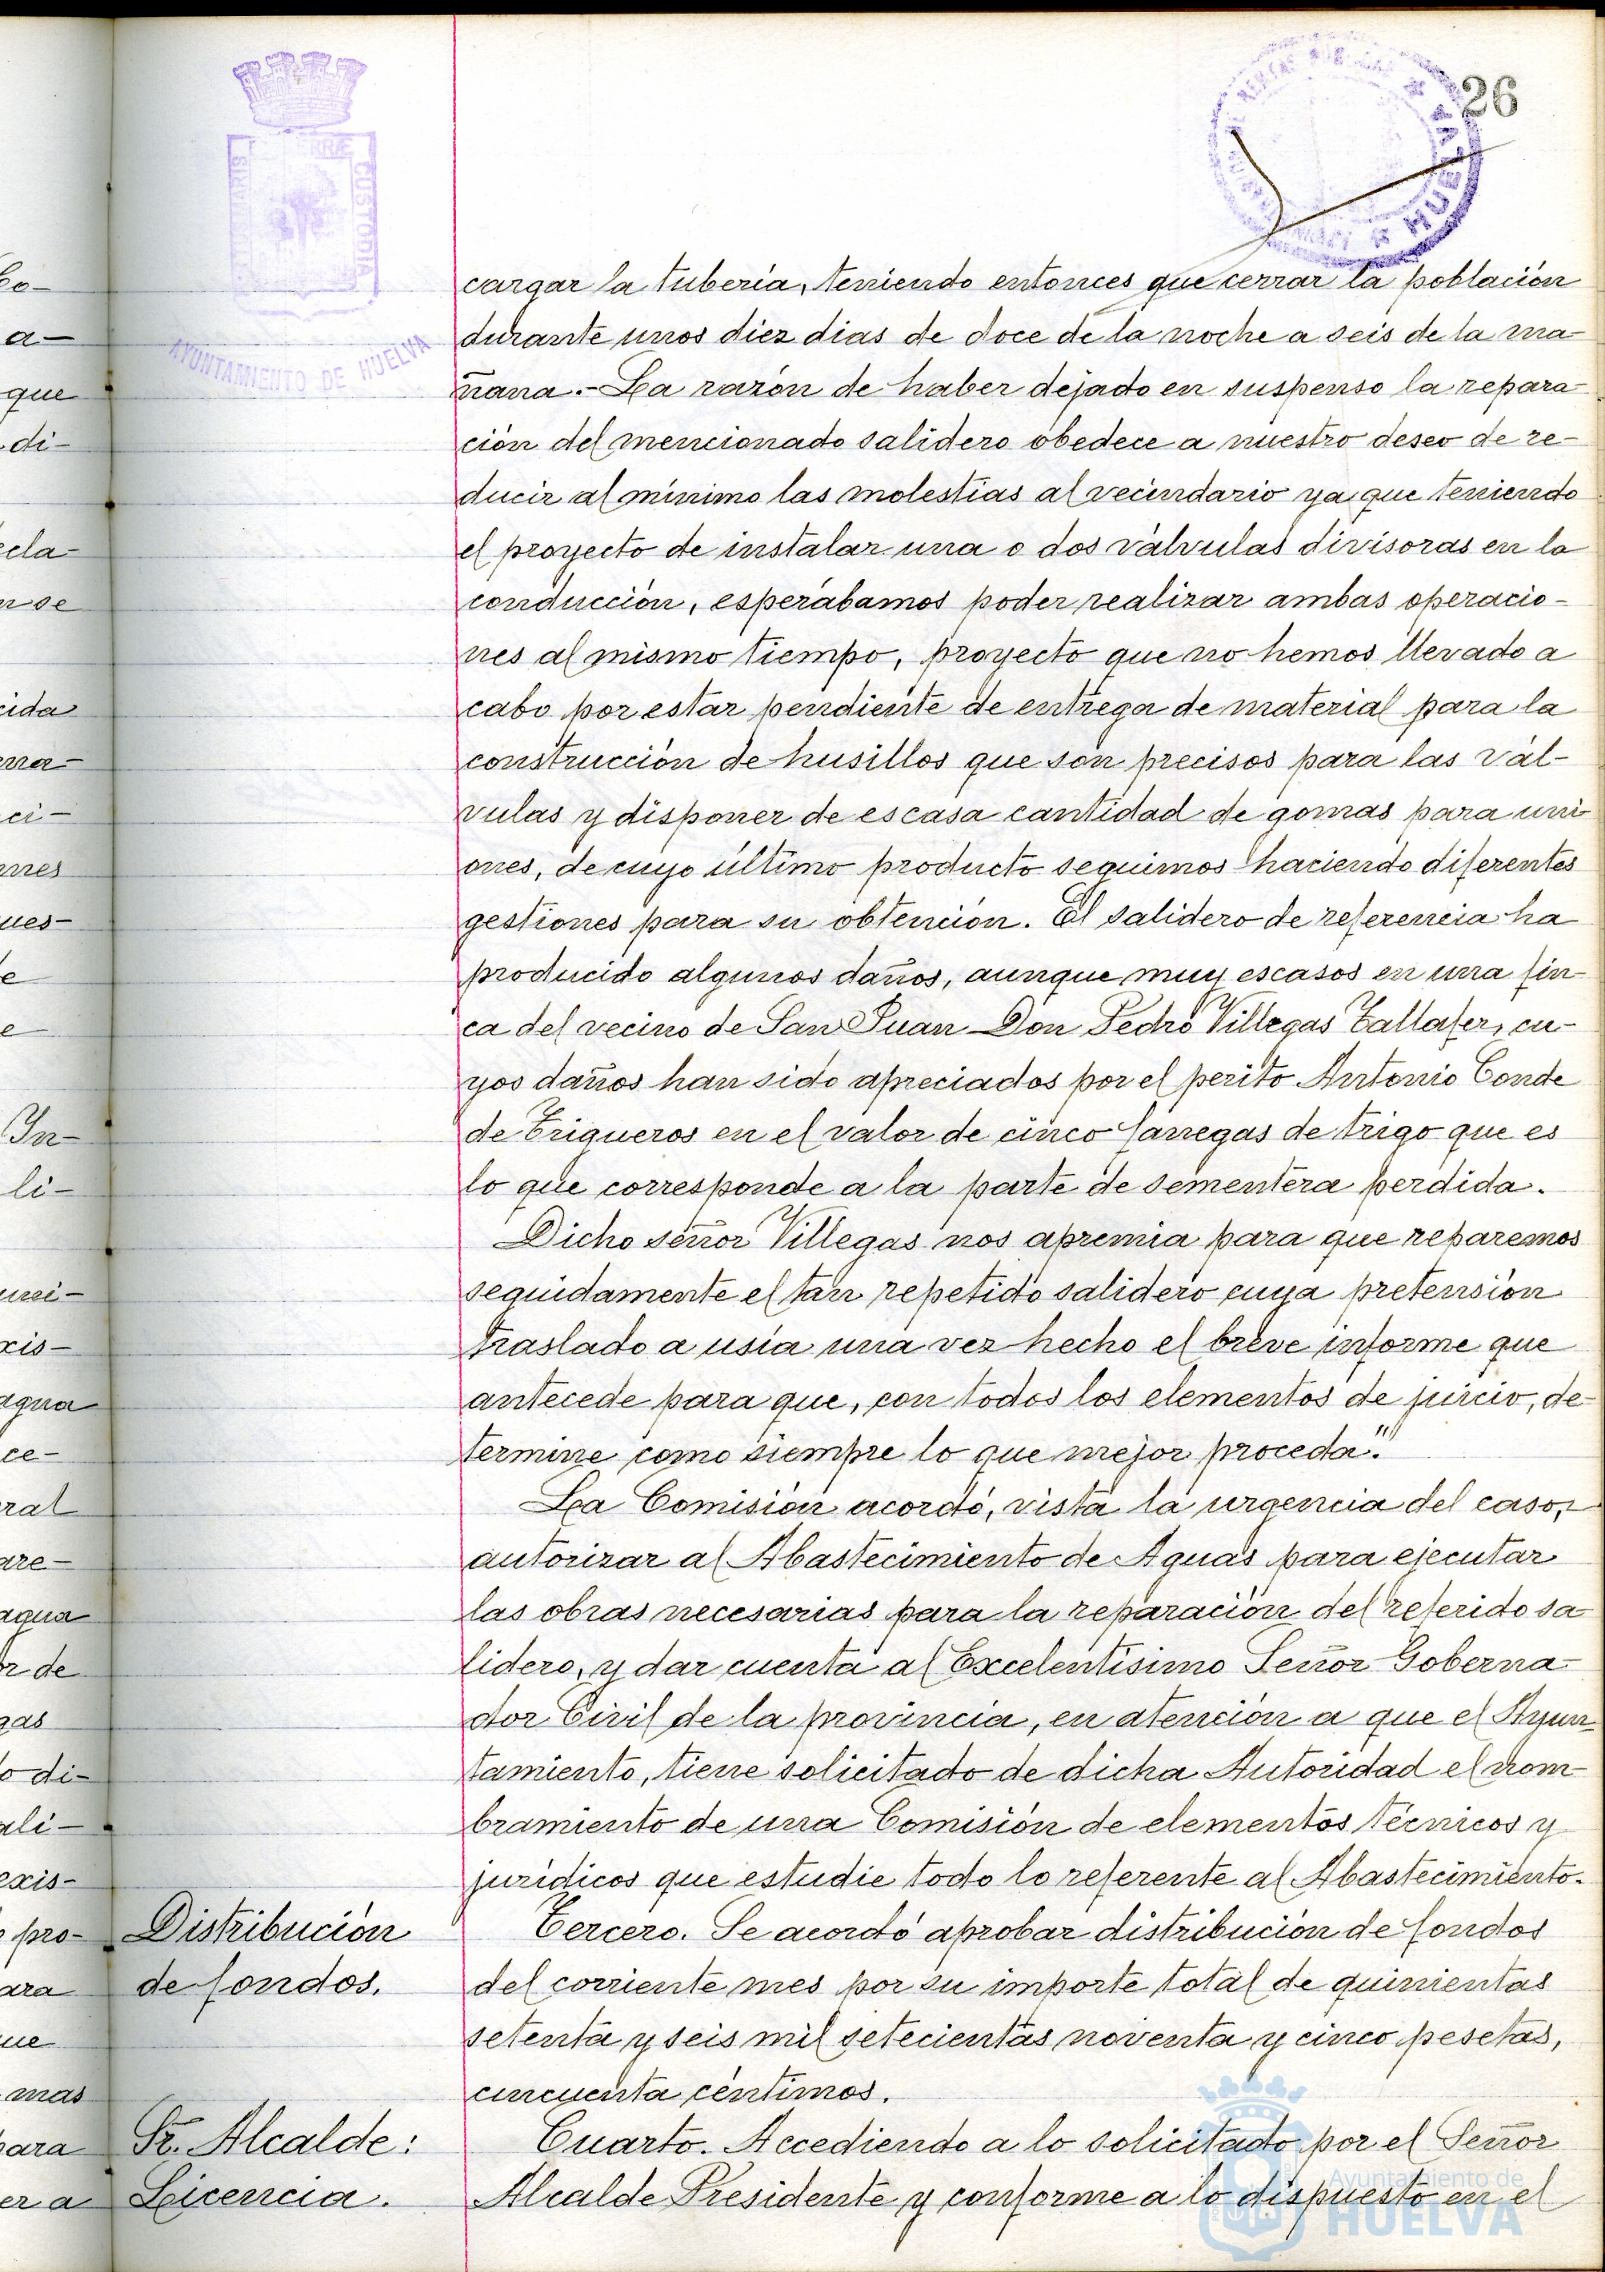 26
AYUNTAMIENTO DE HUELVA
CUSTODIA
HUELVA
cargar la tubería, teniendo entonces que cerrar la población
durante unos diez dias de doce de la noche a seis de la ma-
ñana.- La razón de haber dejado en suspenso la repara-
ción del mencionado salidero obedece a nuestro deseo de re-
ducir al mínimo las molestias al vecindario ya que teniendo
el proyecto de instalar una o dos válvulas divisoras en la
conducción, esperábamos poder realizar ambas operacio-
nes al mismo tiempo, proyecto que no hemos llevado a
cabo por estar pendiente de entrega de material para la
construcción de husillos que son precisos para las vál-
vulas y disponer de escasa cantidad de gomas para uni-
ones, de cuyo último producto seguimos haciendo diferentes
gestiones para su obtención. El salidero de referencia ha
producido algunos daños, aunque muy escasos en una fin-
ca del vecino de San Juan Don Pedro Villegas Tallafer, cu-
yos daños han sido apreciados por el perito Antonio Conde
de Trigueros en el valor de cinco fanegas de trigo que es
lo que corresponde a la parte de sementera perdida.
Dicho señor Villegas nos apremia para que reparemos
seguidamente el tan repetido salidero cuya pretensión
traslado a usía una vez hecho el breve informe que
antecede para que, con todos los elementos de juicio, de-
termine como siempre lo que mejor proceda."
La Comisión acordó, vista la urgencia del caso,
autorizar al Abastecimiento de Aguas para ejecutar
las obras necesarias para la reparación del referido sa-
lidero, y dar cuenta al Excelentísimo Señor Goberna-
dor Civil de la provincia, en atención a que el Ayun-
tamiento, tiene solicitado de dicha Autoridad el nom-
bramiento de una Comisión de elementos técnicos y
jurídicos que estudie todo lo referente al Abastecimiento.
Distribución
de fondos.
Tercero. Se acordó aprobar distribución de fondos
del corriente mes por su importe total de quinientas
setenta y seis mil setecientas noventa y cinco pesetas,
cincuenta céntimos.
Sr. Alcalde:
Licencia.
Cuarto. Accediendo a lo solicitado por el Señor
Alcalde Presidente y conforme a lo dispuesto en el
Ayuntamiento de
HUELVA